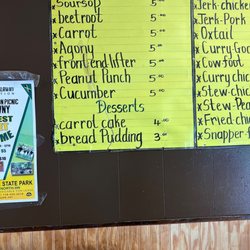 Soursop 5.00
* beetroot 5.00
* Carrot 5.00
* Agony 5.00
* front end lifter 5.00
* Peanut Punch 5.00
* Cucumber 5.00
Desserts
* carrot cake 4.00
* bread Pudding 3.00
Jerk-chicken
* Jerk-Pork
* Oxtail
* Curry-Goa
* Cow foot
* Curry chic
* Stew-chic
* Stew-Pea
* Fried chic
* Snapper-f
PICNIC
STATE PARK